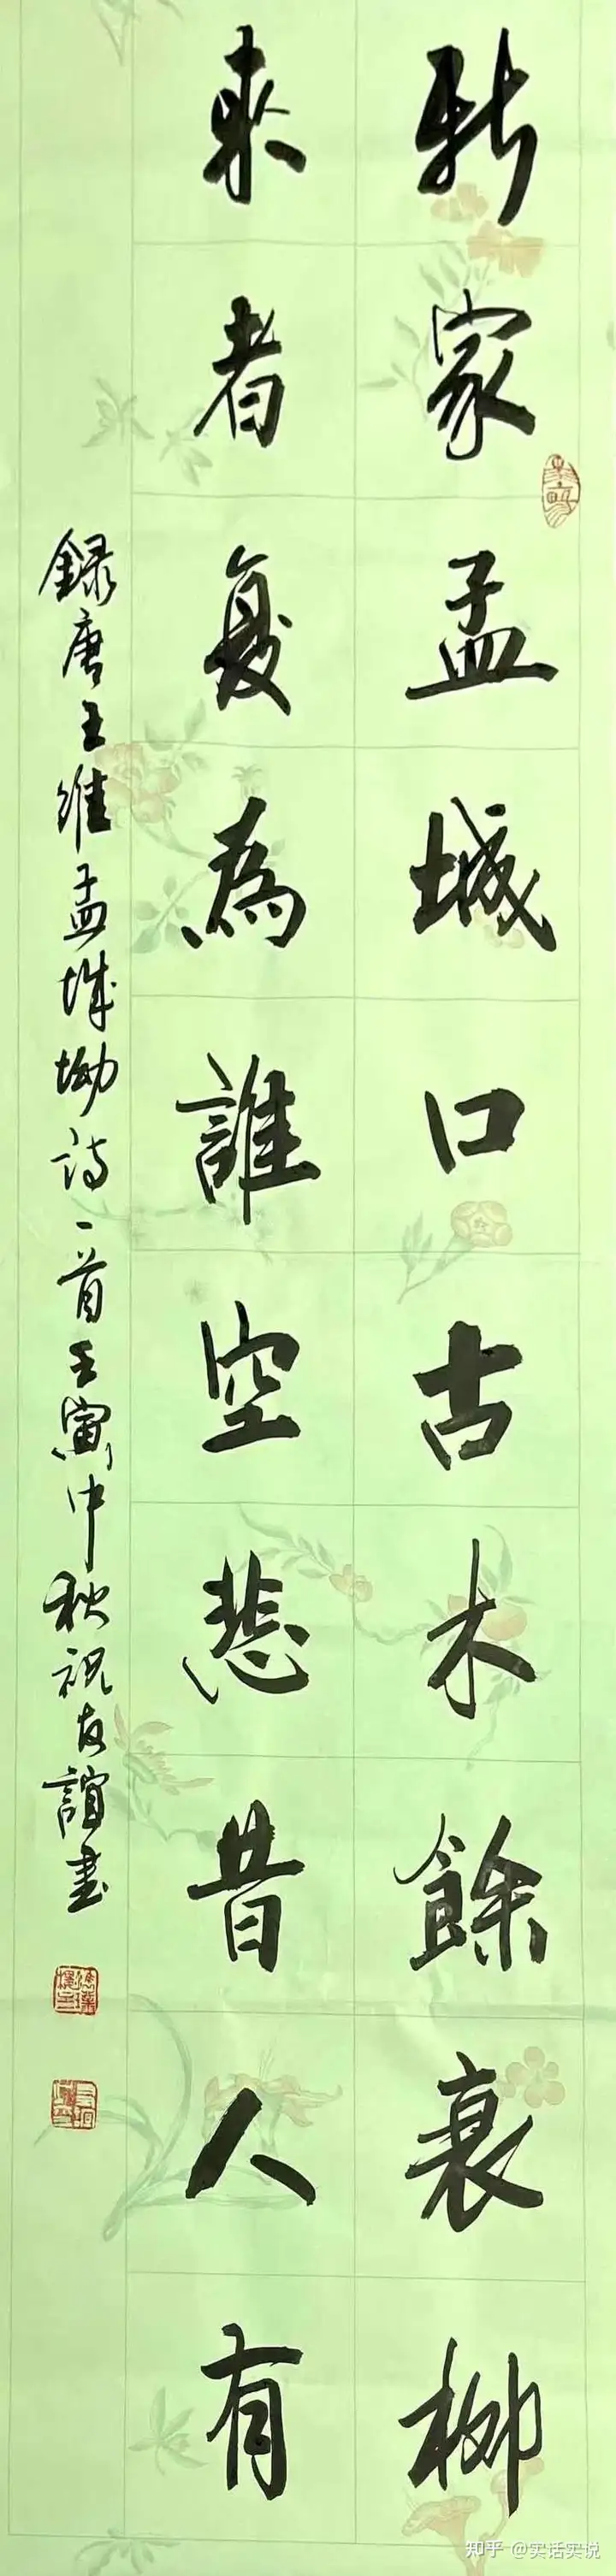 新家孟城口古木餘衰柳
来者复為誰空悲昔人有
録唐王維孟城坳诗一首壬寅中秋祝友誼書
知乎 @实话实说